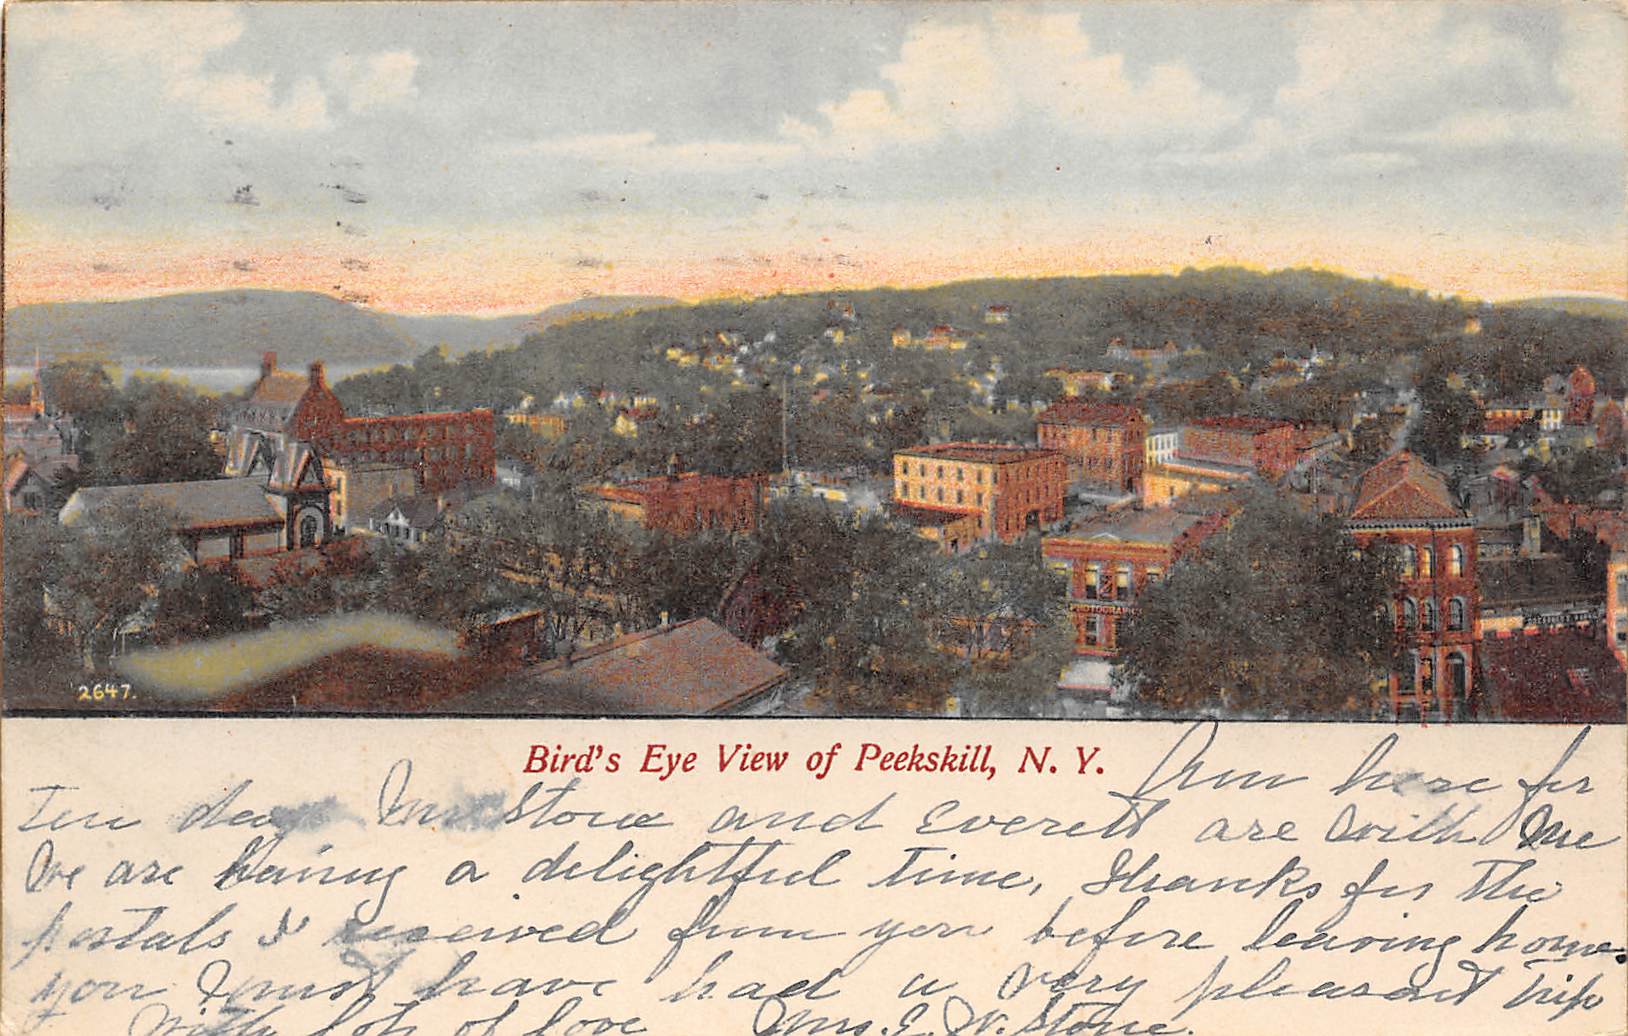 PHOTOGRAPHS
2647.
Bird's Eye View of Peekskill, N. Y.
Am here for
Ten days Mr Stone and Everett are with me
We are having a delightful time, Thanks for the
postals I received from you before leaving home.
you must have had a very pleasant trip
With lots of love Mrs. E. W. Stone.